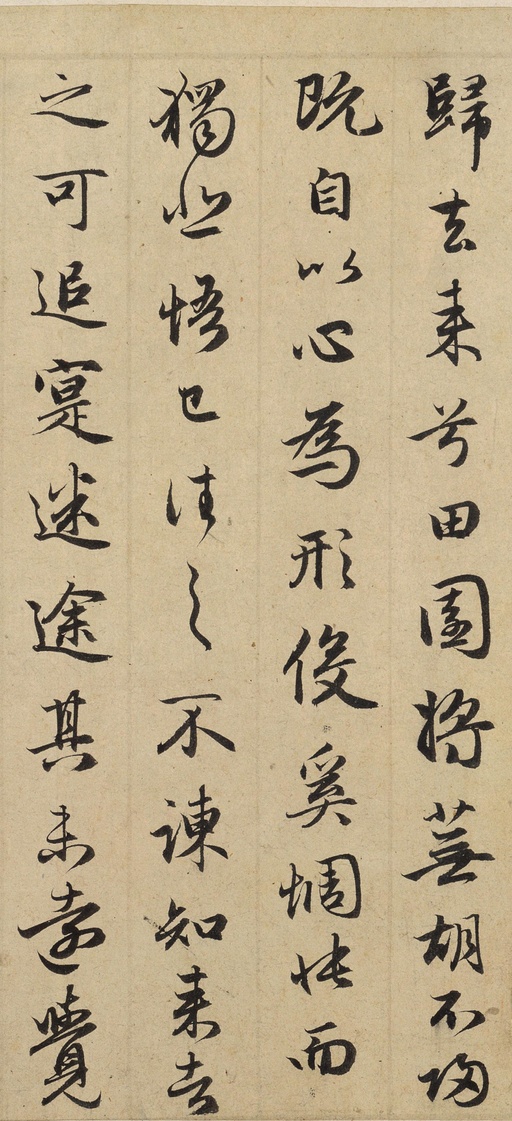 歸去来兮田園将蕪胡不歸
既自以心為形役奚惆悵而
獨悲悟已往之不諫知来者
之可追寔迷途其未遠覺